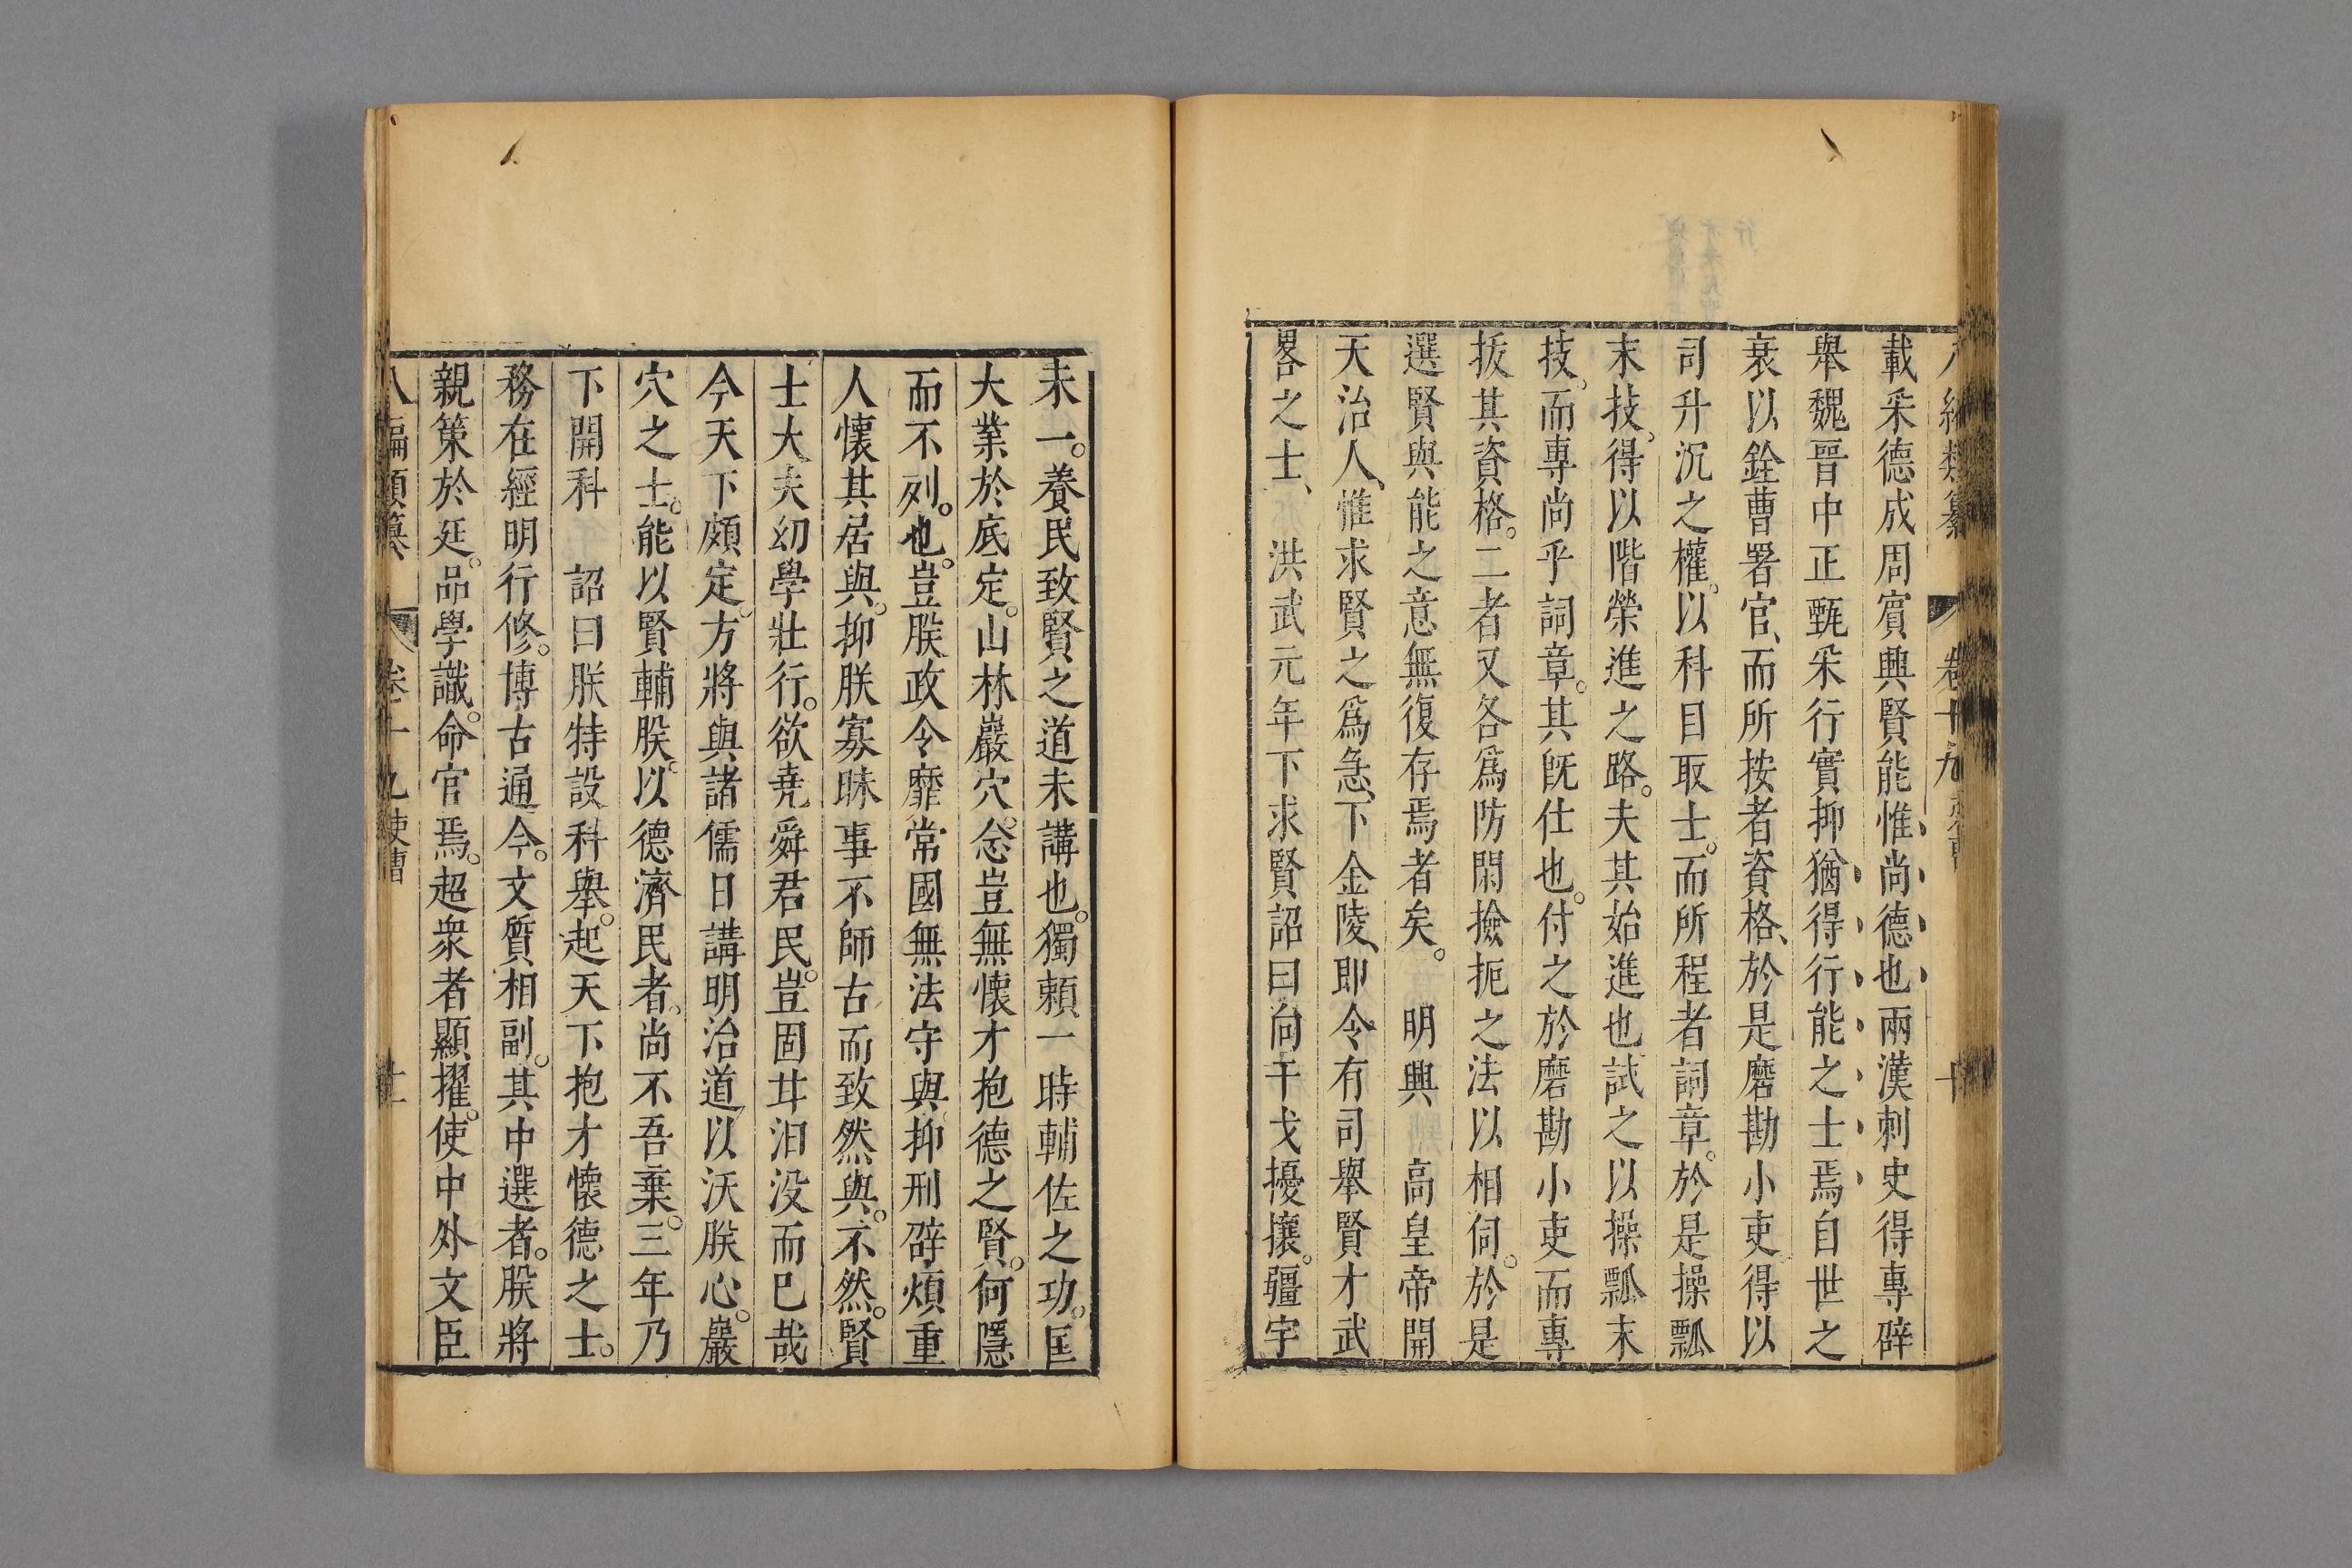 八編類纂 卷十九 十
載采德成周賓興賢能惟尚德也兩漢刺史得專辟
舉魏晉中正甄采行實抑猶得行能之士焉自世之
衰以銓曹署官、而所按者資格、於是磨勘小吏得以
司升沉之權。以科目取士。而所程者詞章。於是操瓢
末技。得以階榮進之路。夫其始進也試之以操瓢末
技。而專尚乎詞章。其旣仕也。付之於磨勘小吏而專
拔其資格。二者又各爲防閑撿扼之法以相伺。於是
選賢與能之意無復存焉者矣。 明興 高皇帝開
天治人、惟求賢之爲急、下金陵、即令有司舉賢才武
畧之士、 洪武元年下求賢詔曰向干戈擾攘。疆宇
未一。養民致賢之道未講也。獨頼一時輔佐之功。匡
大業於底定。山林巖穴。念豈無懷才抱德之賢。何隱
而不列。也。豈朕政令靡常國無法守與抑刑辟煩重
人懷其居與。抑朕寡昧事不師古而致然與。不然。賢
士大夫幼學壯行。欲堯舜君民。豈固甘汩没而巳哉
今天下頗定。方將與諸儒日講明治道以沃朕心。巖
穴之士。能以賢輔朕。以德濟民者。尚不吾棄。三年乃
下開科 詔曰朕特設科舉。起天下抱才懷德之士。
務在經明行修。博古通今。文質相副。其中選者。朕將
親策於廷。品學識。命官焉。超衆者顯擢。使中外文臣
八編類纂 卷十九 吏曹 十一